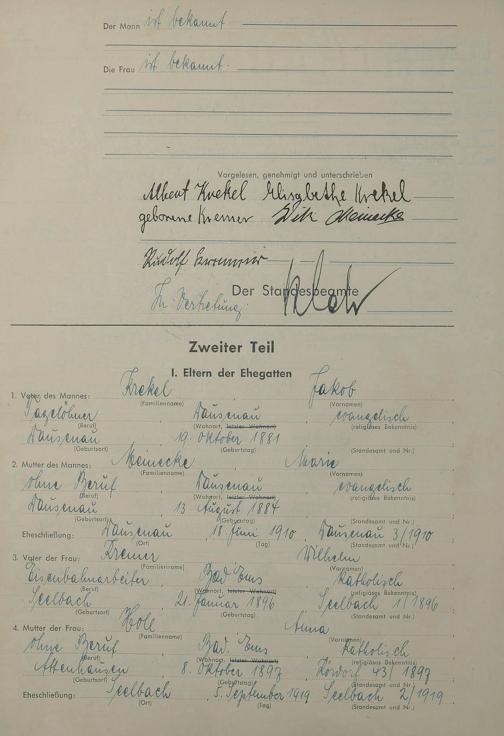 Der Mann ist bekannt
Die Frau ist bekannt.
Vorgelesen, genehmigt und unterschrieben
Albert Krekel Elisabethe Krekel
geborene Kremer Wilh. Meinecke
Rudolf
Der Standesbeamte
In Vertretung:
Zweiter Teil
I. Eltern der Ehegatten
1. Vater des Mannes: Krekel Jakob
(Familienname) (Vornamen)
Tagelöhner Dausenau evangelisch
(Beruf) (Wohnort, letzter Wohnort) (religiöses Bekenntnis)
Dausenau 19. Oktober 1881
(Geburtsort) (Geburtstag) (Standesamt und Nr.)
2. Mutter des Mannes: Meinecke Marie
(Familienname) (Vornamen)
ohne Beruf Dausenau evangelisch
(Beruf) (Wohnort, letzter Wohnort) (religiöses Bekenntnis)
Dausenau 13. August 1884
(Geburtsort) (Geburtstag) (Standesamt und Nr.)
Eheschließung: Dausenau 18. Juni 1910 Dausenau 3/1910
(Ort) (Tag) (Standesamt und Nr.)
3. Vater der Frau: Kremer Wilhelm
(Familienname) (Vornamen)
Eisenbahnarbeiter Bad Ems katholisch
(Beruf) (Wohnort, letzter Wohnort) (religiöses Bekenntnis)
Seelbach 21. Januar 1896 Seelbach 1/1896
(Geburtsort) (Geburtstag) (Standesamt und Nr.)
4. Mutter der Frau: Holl Anna
(Familienname) (Vornamen)
ohne Beruf Bad. Ems katholisch
(Beruf) (Wohnort, letzter Wohnort) (religiöses Bekenntnis)
Attenhausen 8. Oktober 1897 43/1897
(Geburtsort) (Geburtstag) (Standesamt und Nr.)
Eheschließung: Seelbach 5. September 1919 Seelbach 2/1919
(Ort) (Tag) (Standesamt und Nr.)